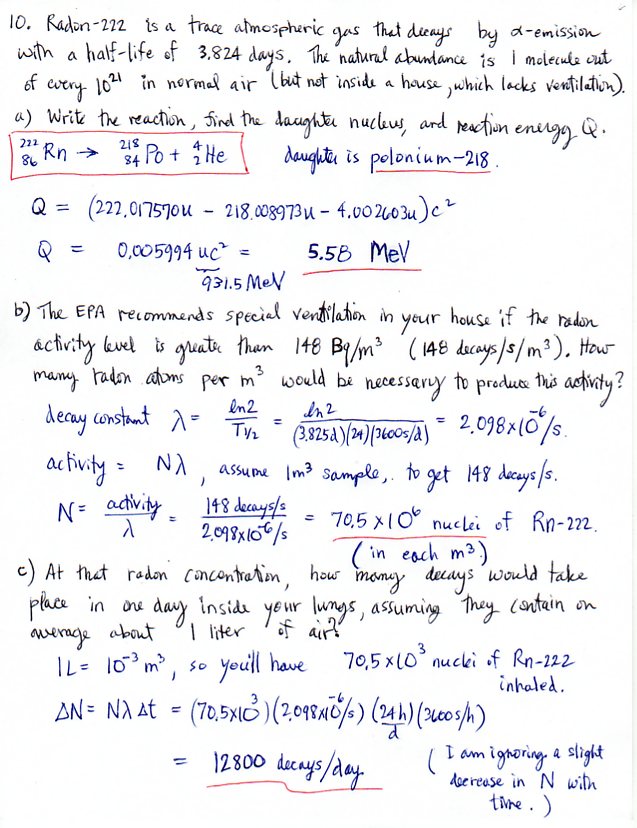 10. Radon-222 is a trace atmospheric gas that decays by α-emission
with a half-life of 3.824 days. The natural abundance is 1 molecule out
of every 10²¹ in normal air (but not inside a house, which lacks ventilation).
a) Write the reaction, find the daughter nucleus, and reaction energy Q.
²²²₈₆Rn → ²¹⁸₈₄Po + ⁴₂He daughter is polonium-218.
Q = (222.017570u - 218.008973u - 4.002603u)c²
Q = 0.005994 uc² = 5.58 MeV
931.5 MeV
b) The EPA recommends special ventilation in your house if the radon
activity level is greater than 148 Bq/m³ (148 decays/s/m³). How
many radon atoms per m³ would be necessary to produce this activity?
decay constant λ = ln2/T½ = ln2/(3.825d)(24)(3600s/d) = 2.098×10⁻⁶/s.
activity = Nλ, assume 1m³ sample,. to get 148 decays/s.
N = activity/λ = 148 decays/s/2.098×10⁻⁶/s = 70.5 × 10⁶ nuclei of Rn-222.
(in each m³)
c) At that radon concentration, how many decays would take
place in one day inside your lungs, assuming they contain on
average about 1 liter of air?
1L = 10⁻³ m³, so you'll have 70.5×10³ nuclei of Rn-222
inhaled.
ΔN = Nλ Δt = (70.5×10³)(2.098×10⁻⁶/s)(24h/d)(3600s/h)
= 12800 decays/day.
(I am ignoring a slight
decrease in N with
time.)